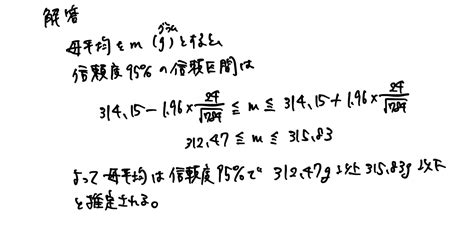 解答
母平均をm(g)とすると、
グラム
信頼度95%の信頼区間は
314.15-1.96×24/√784≦m≦314.15+1.96×24/√784
312.47≦m≦315.83
よって母平均は信頼度95%で312.47g以上315.83g以下
と推定される。